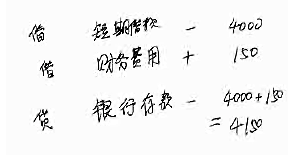 借 短期借款 - 4000
借 财务费用 + 150
贷 银行存款 - 4000+150
= 4150